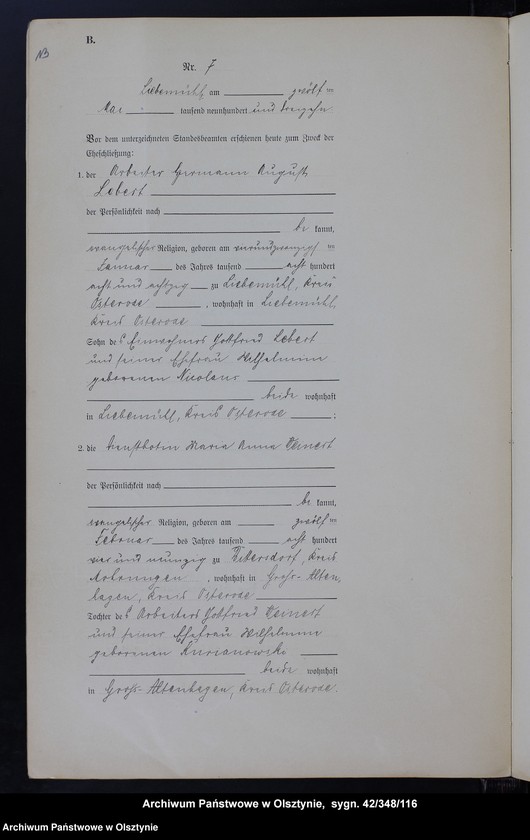 B.
NB
Nr. 7
Liebemühl am zwölf ten
Mai tausend neunhundert und dreizehn.
Vor dem unterzeichneten Standesbeamten erschienen heute zum Zweck der
Eheschließung:
1. der Arbeiter Hermann August
Lebert
der Persönlichkeit nach
be kannt,
evangelischer Religion, geboren am vierundzwanzigsten
Januar des Jahres tausend acht hundert
acht und achtzig zu Liebemühl, Kreis
Osterode, wohnhaft in Liebemühl,
Kreis Osterode
Sohn des Einwohners Gottfried Lebert
und seiner Ehefrau Wilhelmine
geborenen Nicolaus
beide wohnhaft
in Liebemühl, Kreis Osterode;
2. die Dienstbotin Maria Anna
der Persönlichkeit nach
be kannt,
evangelischer Religion, geboren am zwölf ten
Februar des Jahres tausend acht hundert
vier und neunzig zu Kreis
Mohrungen, wohnhaft in Groß-Alten,
hagen, Kreis Osterode
Tochter des Arbeiters Gottfried
und seiner Ehefrau Wilhelmine
geborenen
beide wohnhaft
in Groß-Altenhagen, Kreis Osterode.
Archiwum Państwowe w Olsztynie, sygn. 42/348/116
Archiwum Państwowe w Olsztynie